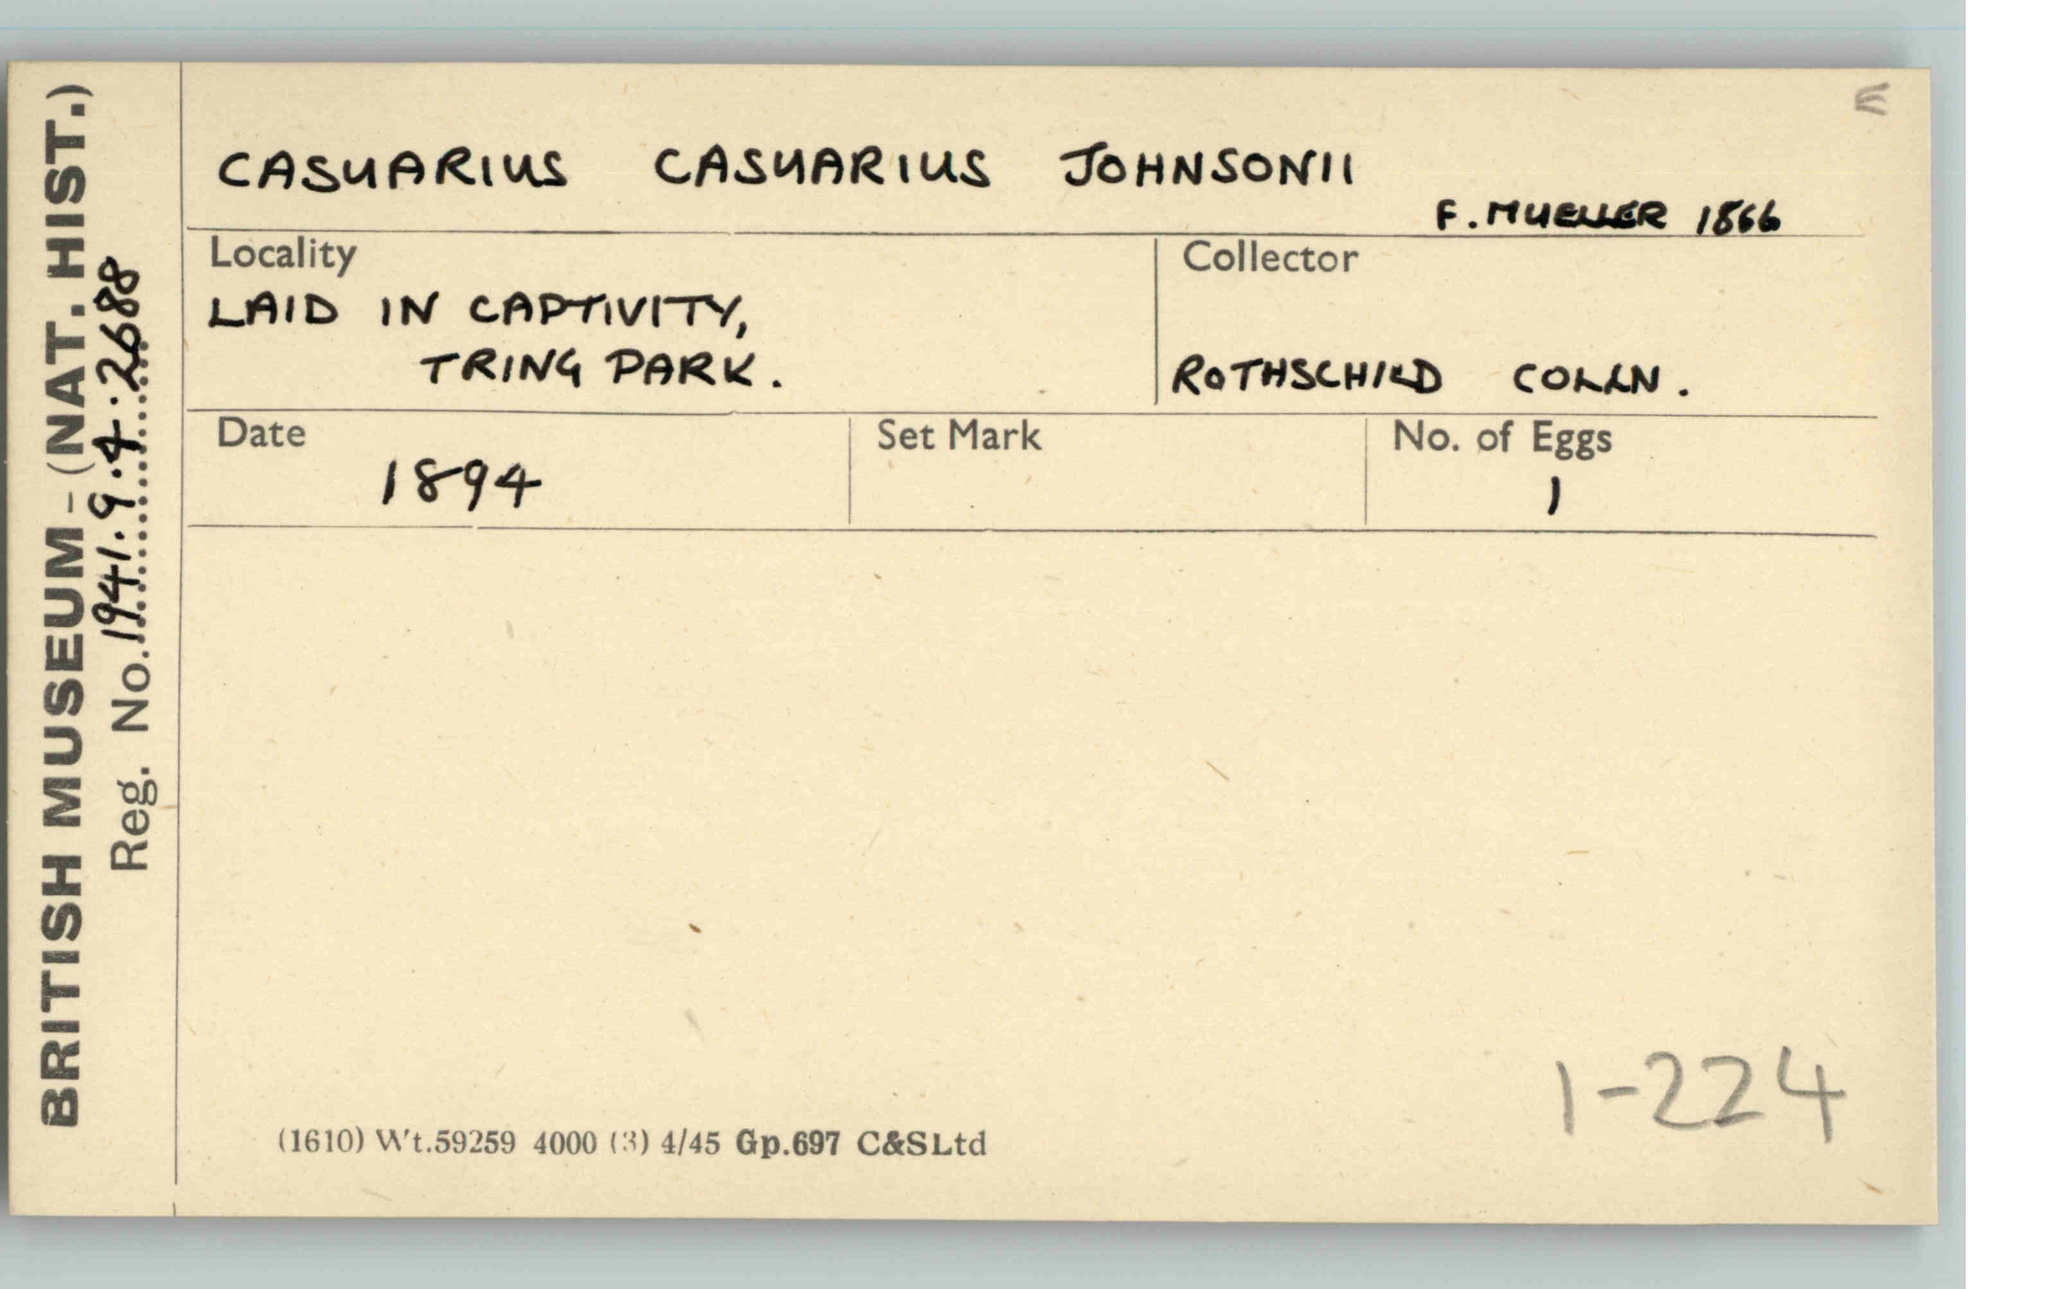 BRITISH MUSEUM-(NAT. HIST.)
Reg. No. 1941.9.4.2688
CASUARIUS CASUARIUS JOHNSONII
F. MUELLER 1866
Locality
LAID IN CAPTIVITY,
TRING PARK.
Collector
ROTHSCHILD COLLN.
Date
1894
Set Mark
No. of Eggs
1
(1610) Wt.59259 4000 (3) 4/45 Gp.697 C&SLtd
1-224